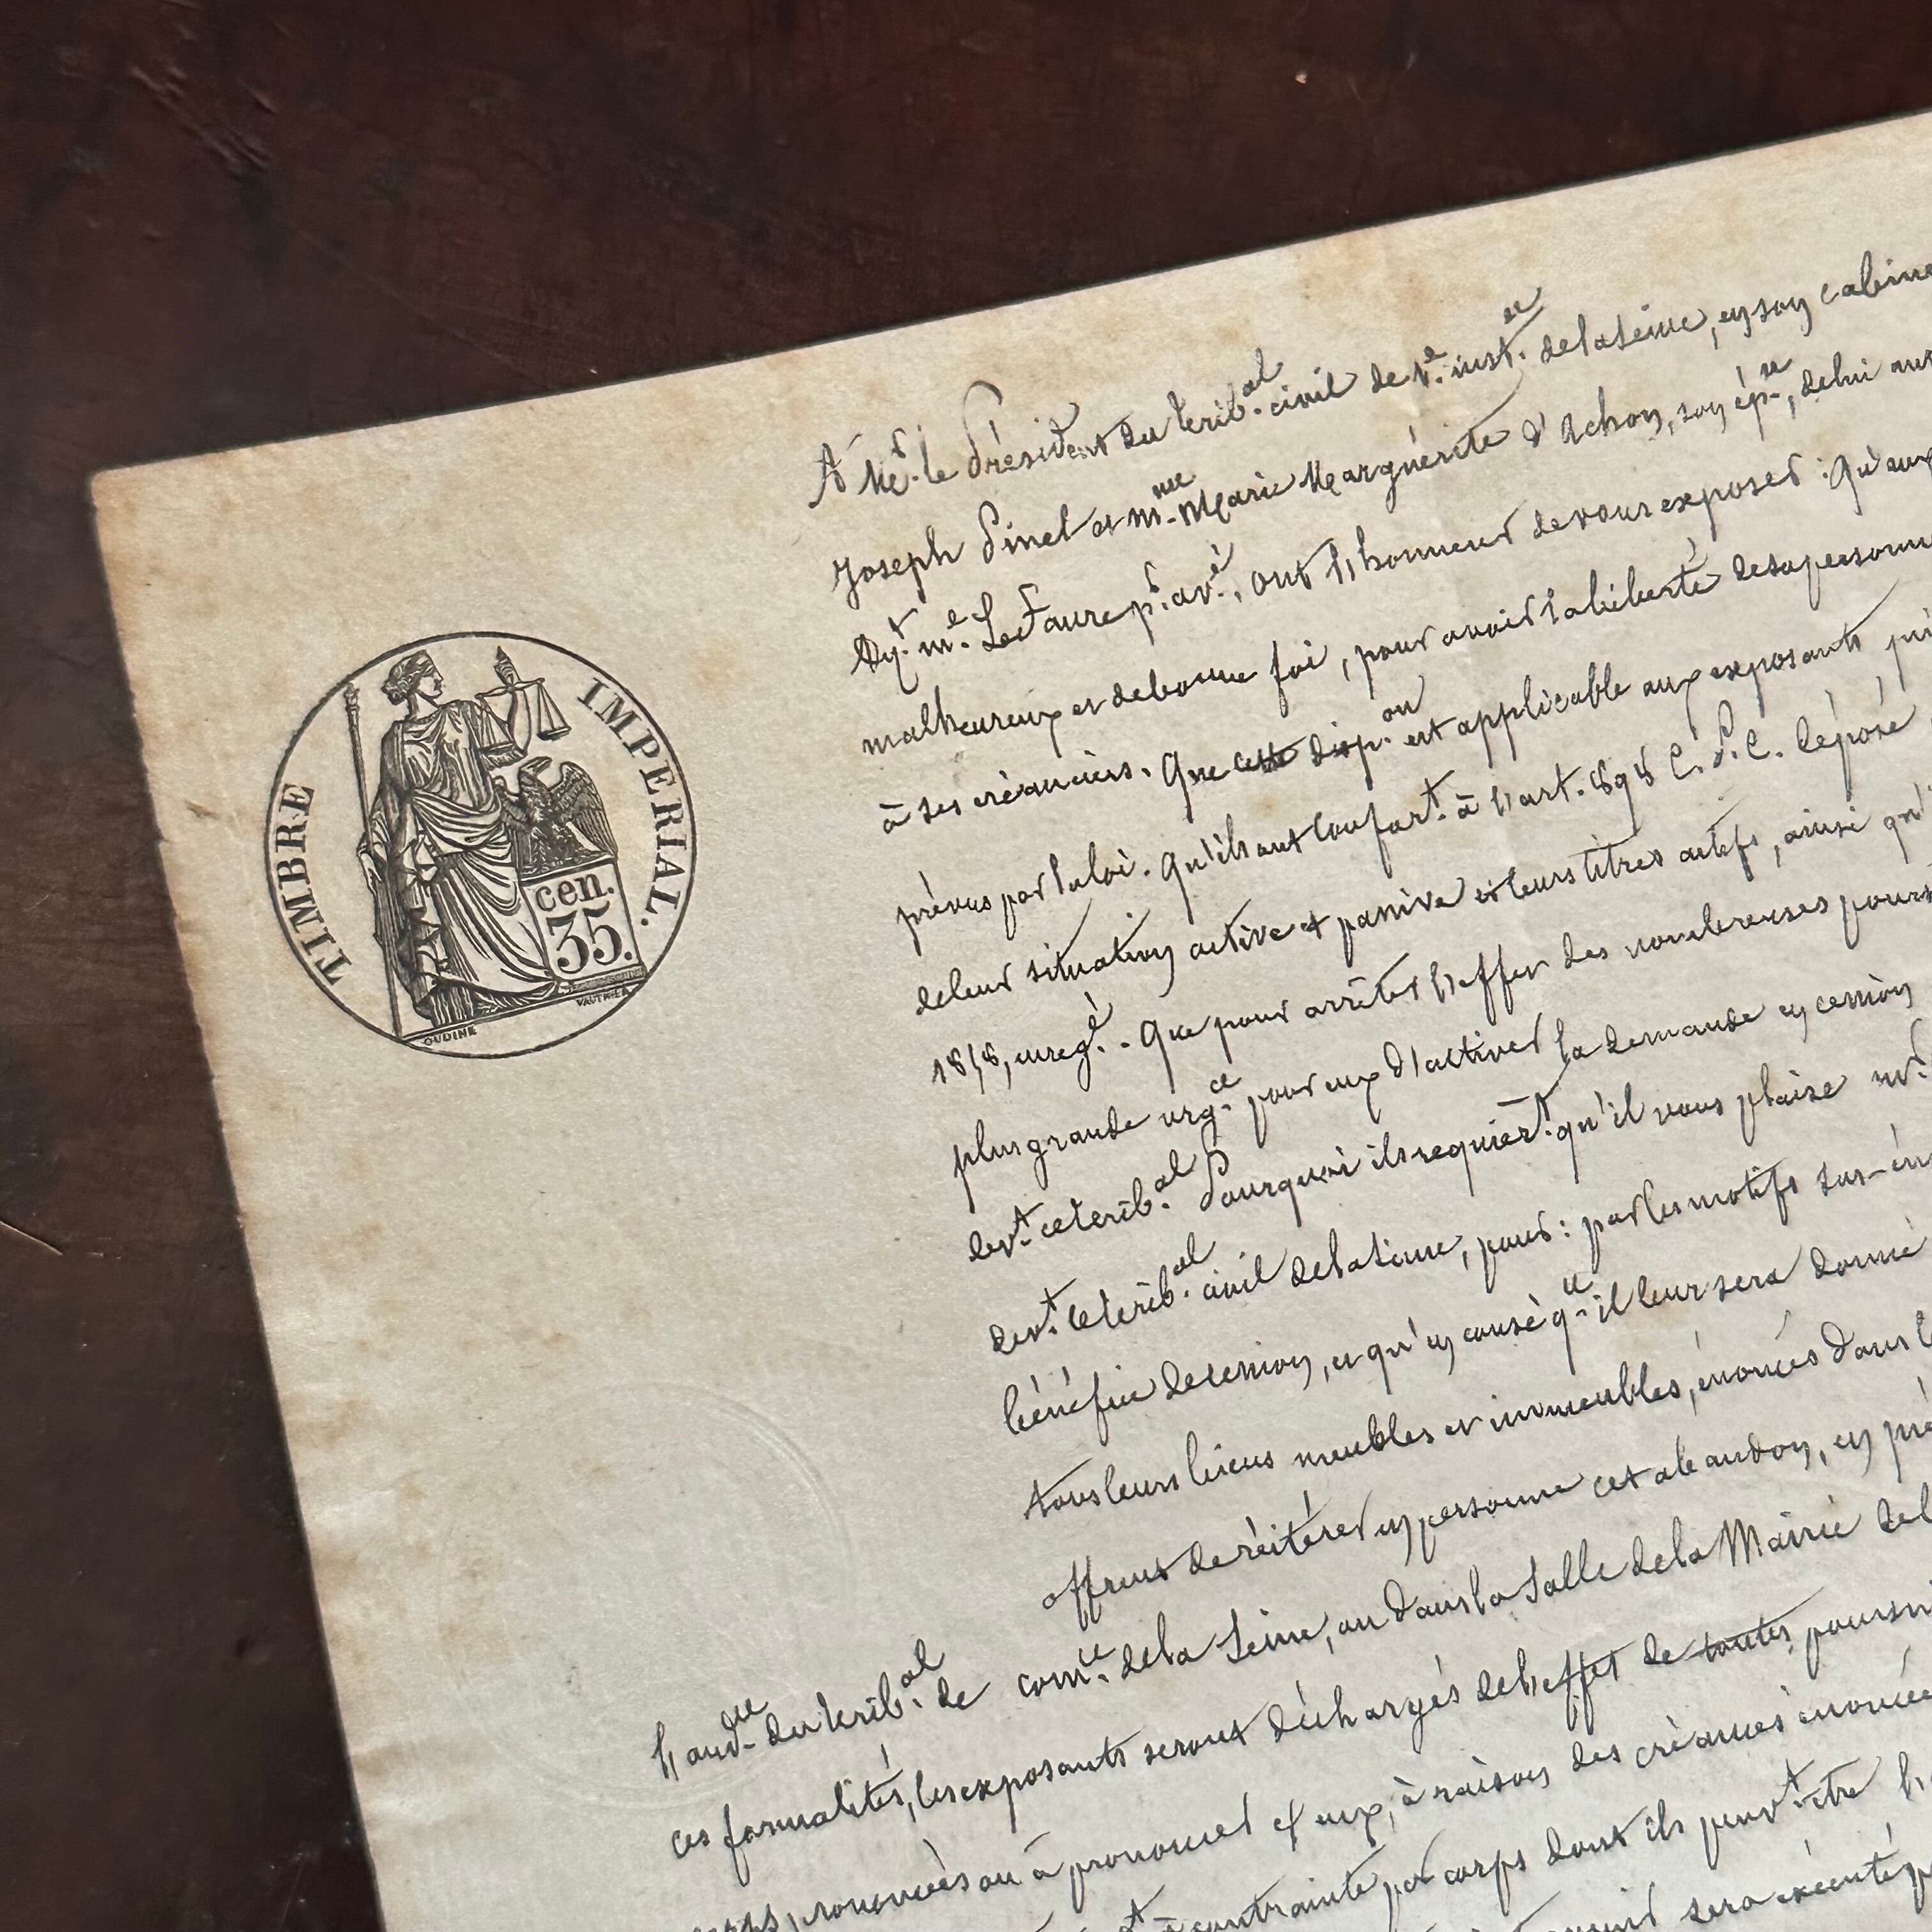 TIMBRE IMPERIAL.
cen.
35.
OUDINE
VAUTHIER
A Mr. le Président du trib.al civil de 1.e inst.ce de la Seine, en son cabine
Joseph Pinel et m.me Marie Marguérite d'Achon, son ép.se, de lui aut
m.e LeFaure p.r av.é, ont l'honneur de vous exposer : Qu'aux
malheureux et de bonne foi, pour avoir la liberté de sa personne
à ses créanciers. Que cette disp.on est applicable aux exposants
prévus par la loi. Qu'ils ont conform.t à l'art. 898 C. P. C. déposé
de leur situation active et passive et leurs titres actifs, ainsi qu'i
enreg.é. Que pour arrêter l'effet des nombreuses pours
plus grande urg.ce pour eux d'activer la demande en cession
dev.t ce trib.al Pourquoi ils requièr.t qu'il vous plaise m.r
dev.t le trib.al civil de la Seine, pour : par les motifs sus-én
bénéfice de cession, et qu'en conséq.ce il leur sera donné
tous leurs biens meubles et immeubles, énoncés dans l
offrent de réitérer en personne cet abandon, en pré
l'aud.ce du trib.al de com.ce de la Seine, ou dans la Salle de la Mairie de l
ces formalités, les exposants seront déchargés de l'effet de toutes poursui
prononcées ou à prononcer cf eux, à raison des créances énoncée
contrainte par corps dont ils peuv.t être l'
sera exécuté p